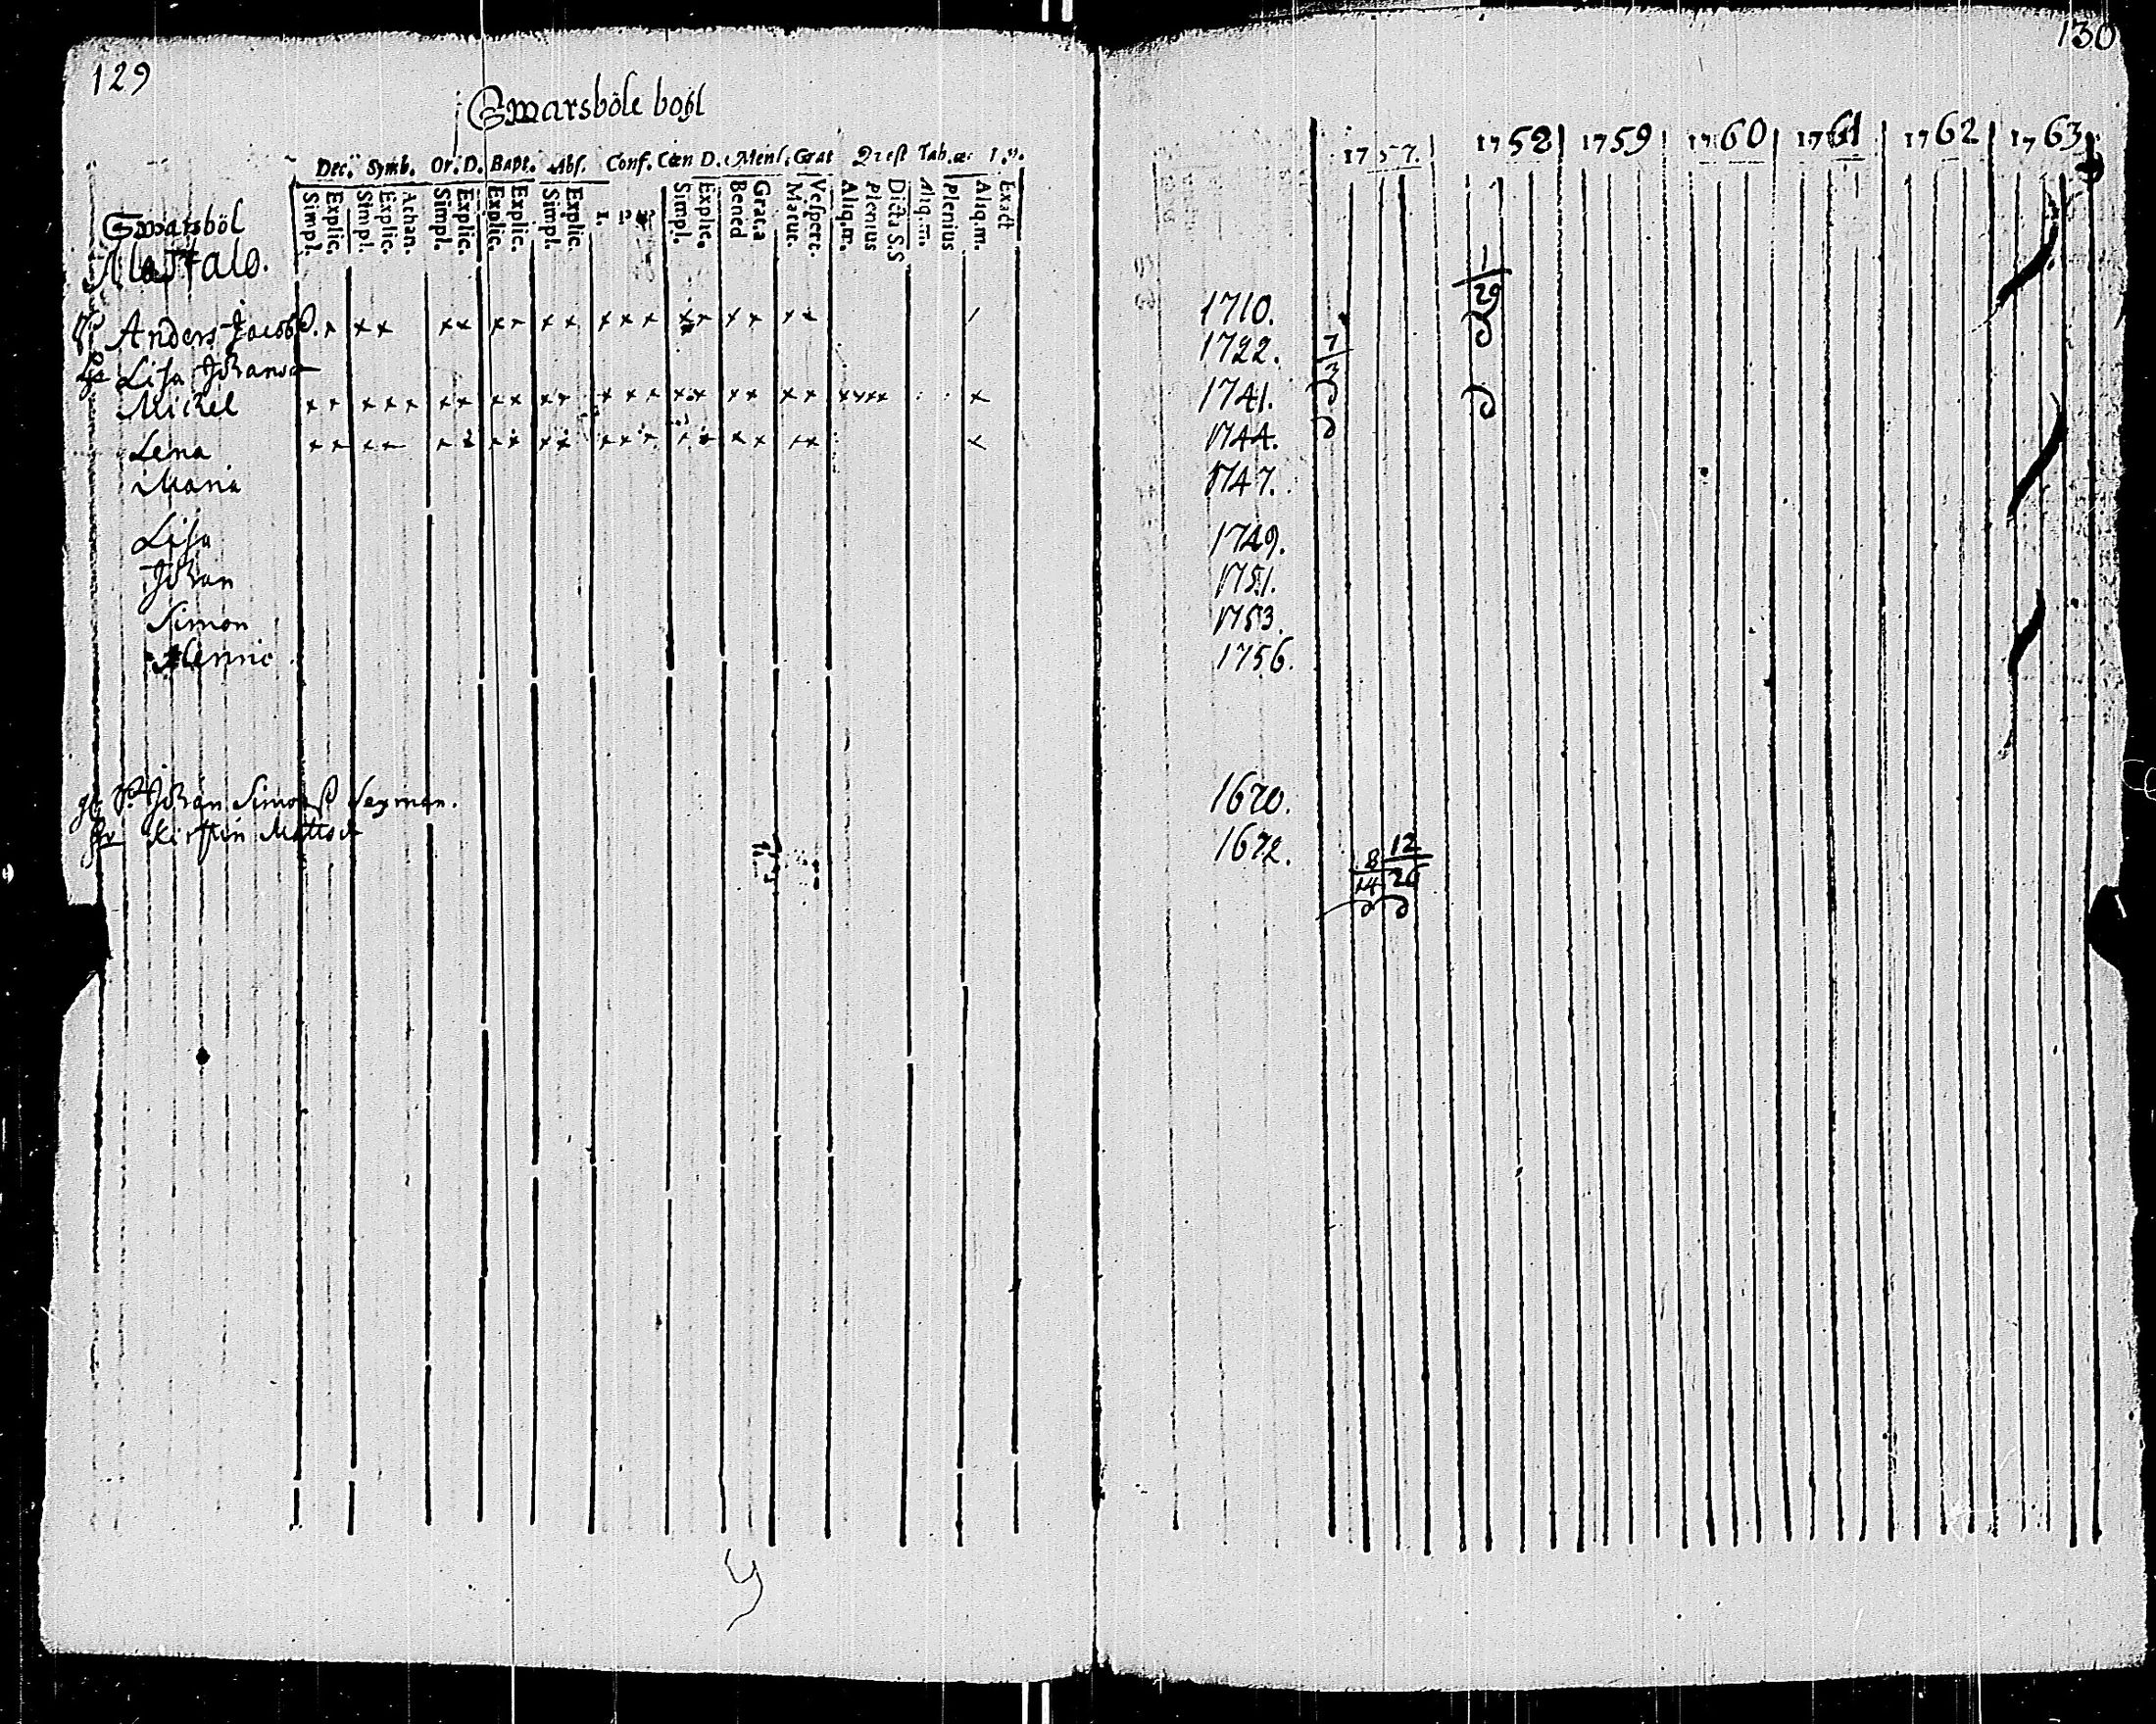 129
130
Swarsböle boĸl
Dec. Symb. Or. D. Bapt. Abs. Conf. Cœn D. Mens. Grat Qvest Tab. æc
Simpl. Explic. Simpl. Explic. Athan. Simpl. Explic. Explic. Explic. Simpl. Explic. Simpl. Explic. Bened Grat.a Matut. Vespert. Aliq.m. Plenius Dicta S.S Aliq.m. Plenius Aliq.m. Exact
1757. 1758 1759 1760 1761 1762 1763
Swarsböl
Alastalo.
Anders Jacobs. 1710.
Lisa Johansd 1722.
Michel 1741.
Lena 1744.
Maria 1747.
Lisa 1749.
Johan 1751.
Simon 1753.
1756.
Johan Simonss 1670.
Kirstin Mattsd 1672.
7/3
1/29
8/14 12/26